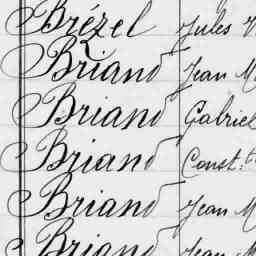 Brézel Jules
Briand Jean M
Briand Gabriel
Briand Const.
Briand Jean M
Briand Jean M